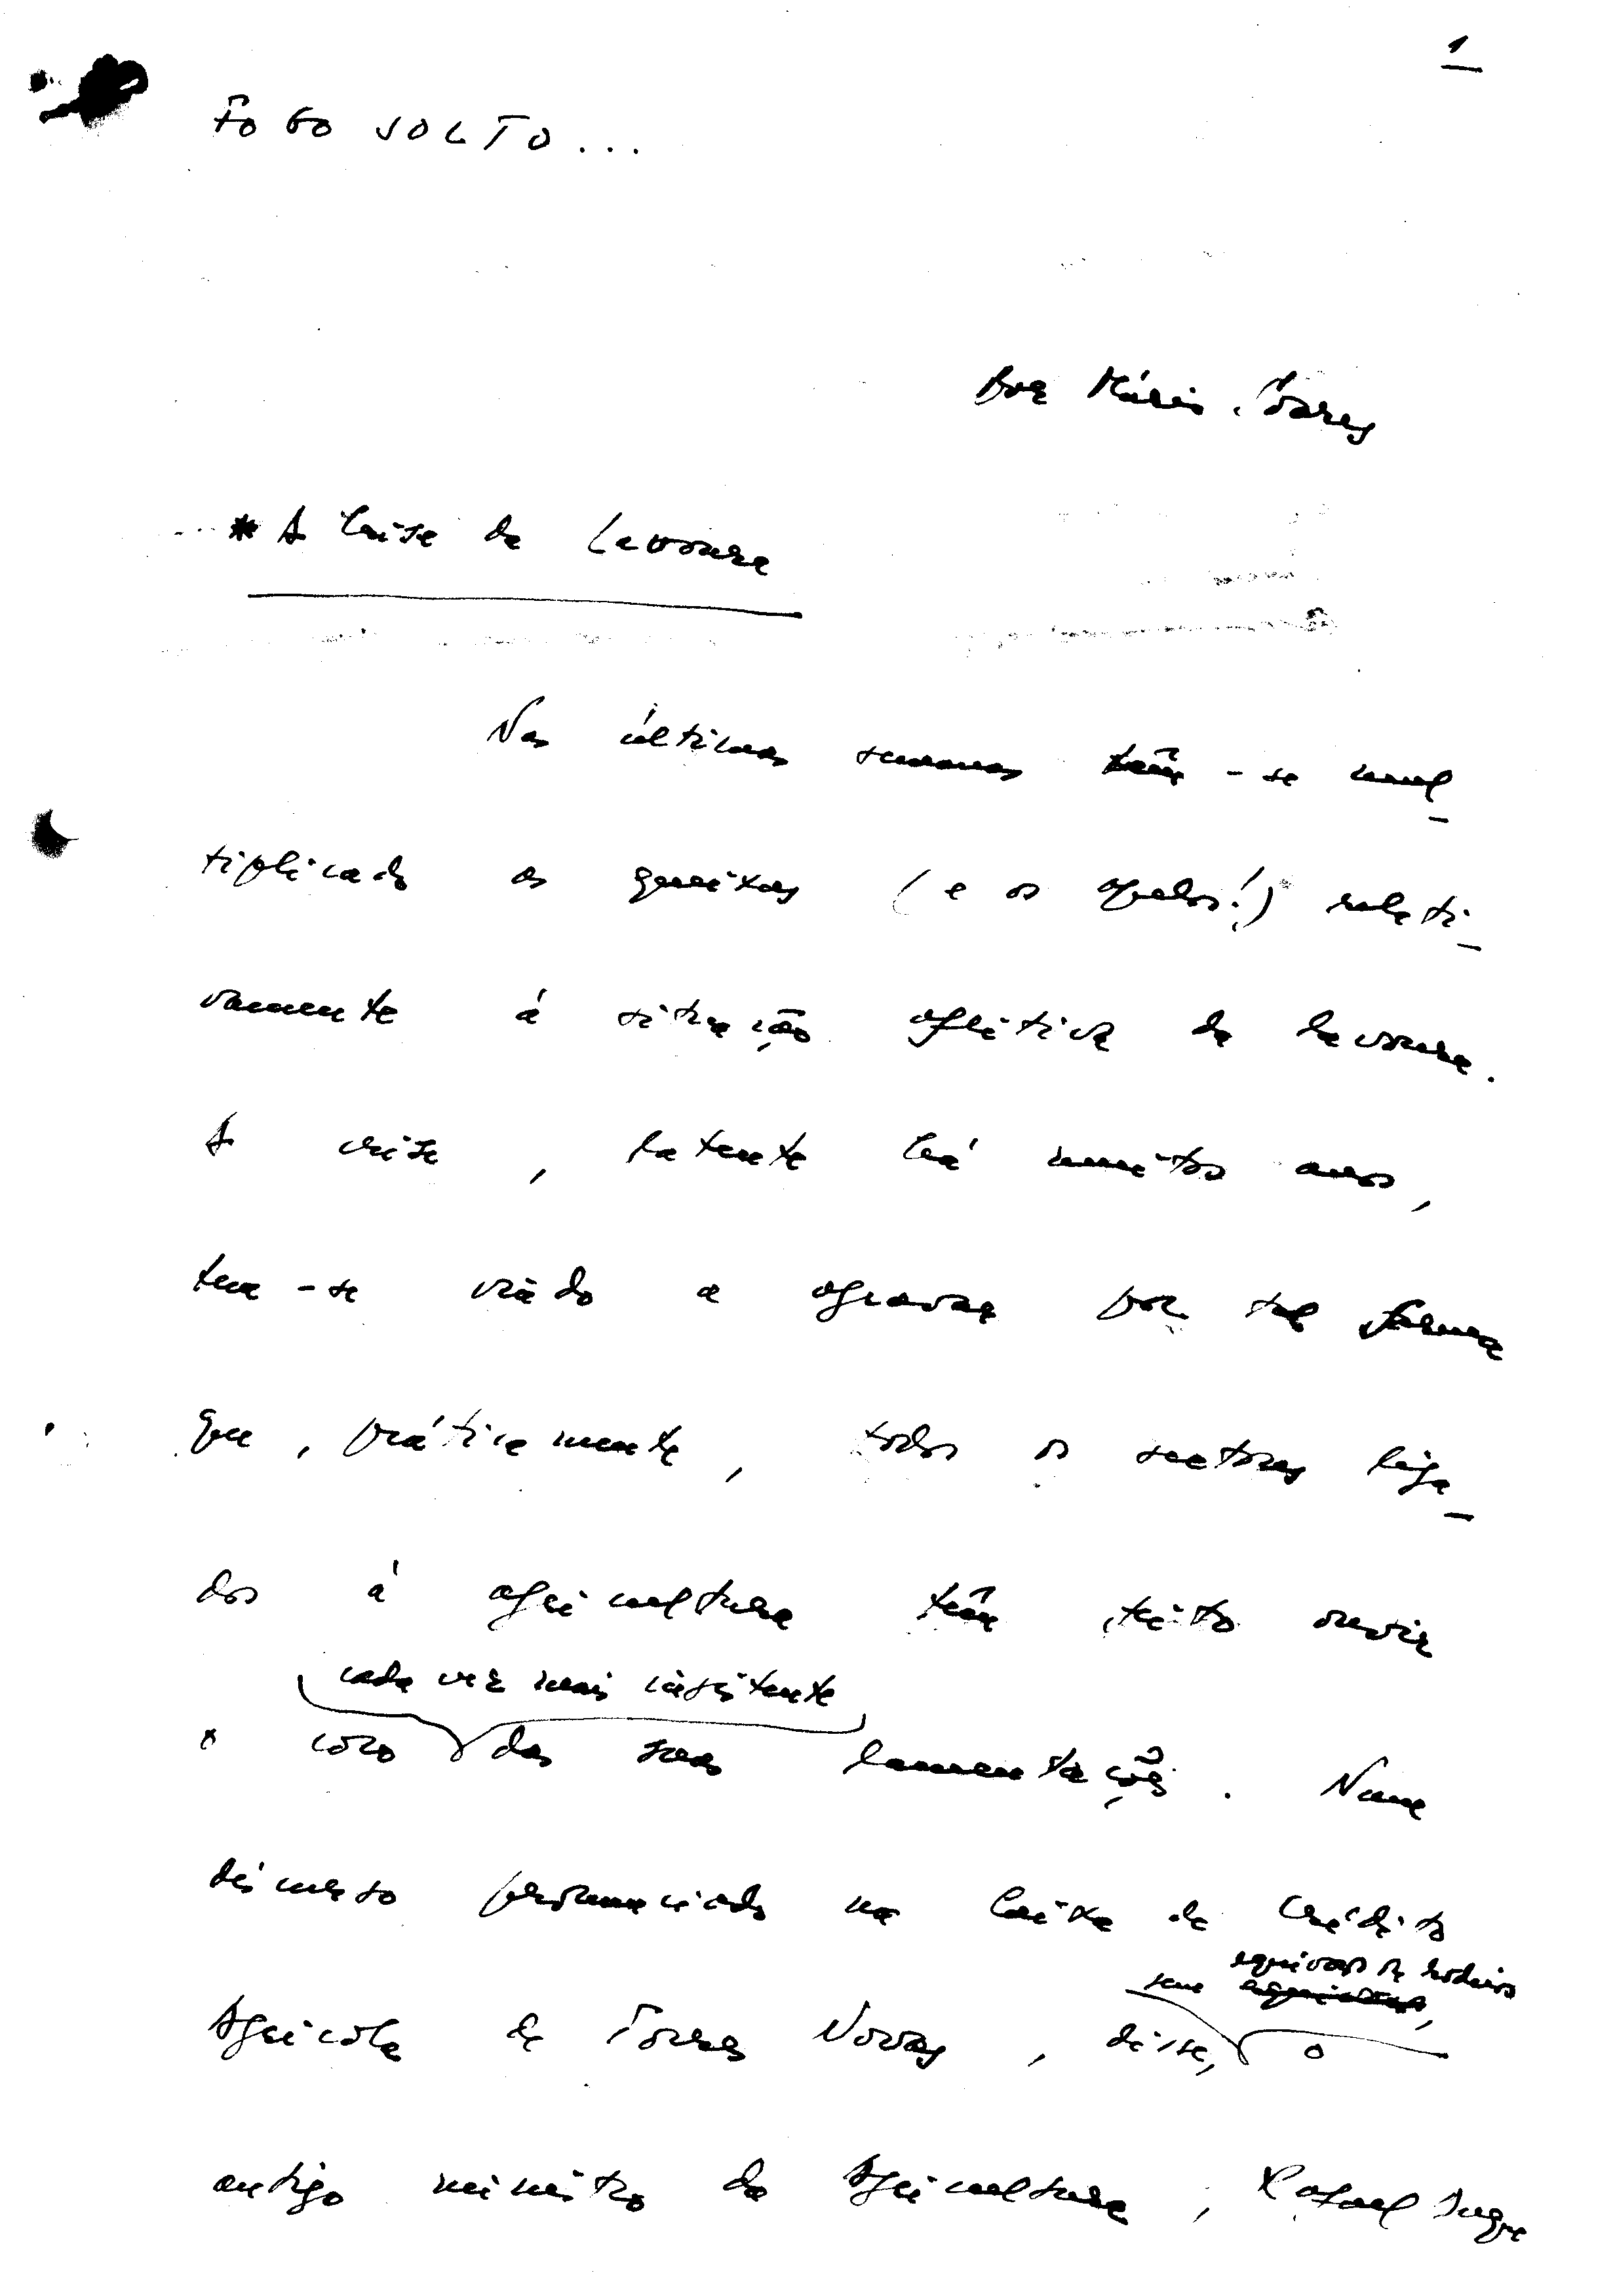 1
FOGO SOLTO...
por Mário Soares
* A Crise da Lavoura
Nas últimas semanas têm-se mul-
tiplicado as queixas (e os apelos!) relati-
vamente à situação aflitiva da lavoura.
A crise, latente há muitos anos,
tem-se vindo a agravar por tal forma
que, práticamente, todos os sectores liga-
dos à agricultura têm feito ouvir
cada vez mais insistente
o coro das suas lamentações. Num
discurso pronunciado na Caixa de Crédito
sem equívocos ou rodeios
Agrícola de Torres Novas, disse, o
antigo ministro da Agricultura, Rafael Duque